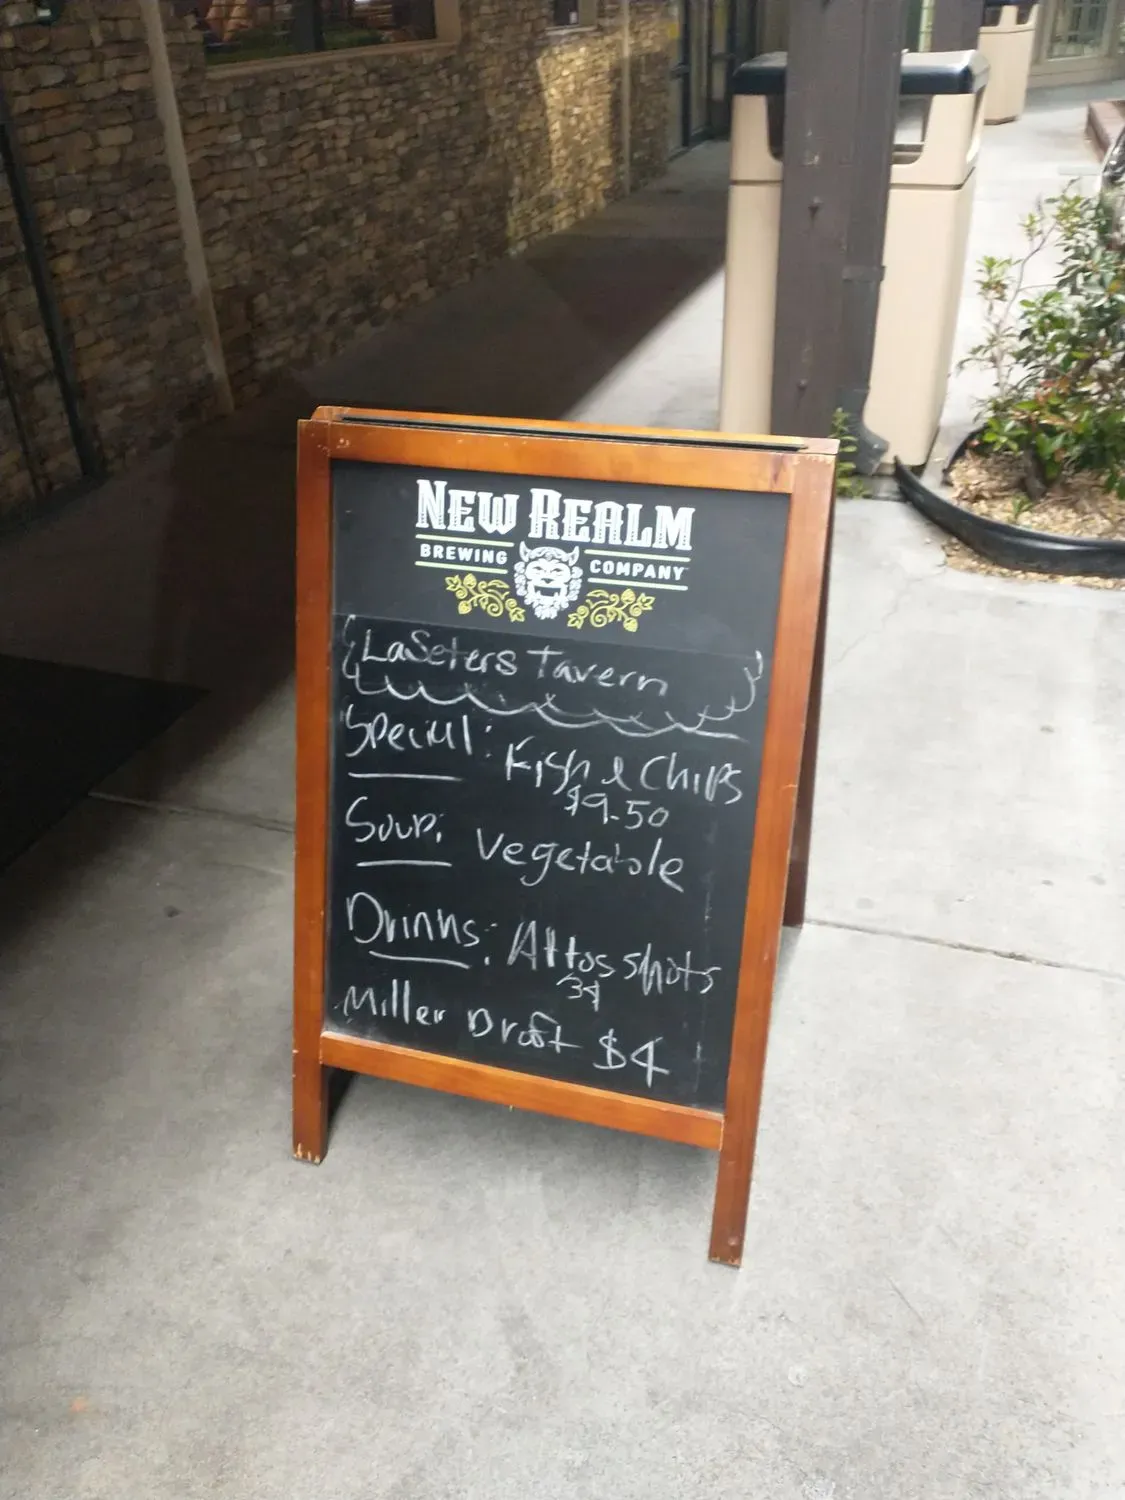 NEW REALM
BREWING COMPANY
LaSeters Tavern
Special: Fish & Chips
$9.50
Soup: Vegetable
Drinks: Altos shots
Miller Draft $4